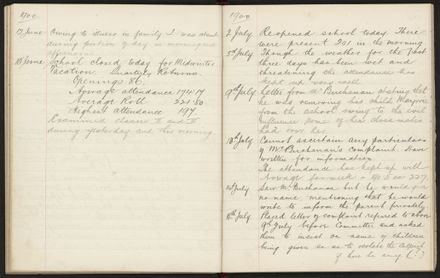 1900
13 June Owing to illness in family I was absent
during portion of day in morning and
afternoon.
15 June School closed today for Midwinter
Vacation. Quarterly Returns.
Openings 86.
Average attendance 194.17
Average Roll 221.80
Highest attendance 197.
Examined classes
during yesterday and this morning
1900
2 July Reopened school today. There
were present 201 in the morning
5th July Though the weather for the past
three days has been wet and
threatening the attendance has
kept up very well.
9th July Letter from Mr Buchanan stating that
he was removing his child Margaret
from the school owing to the evil
influence some of her class mates
had over her.
10th July Cannot ascertain any particulars
of Mr Buchanan's complaint. Have
written for information.
The attendance has kept up well
Average for week
July Saw Mr Buchanan but he would give
no name, mentioning that he would
write to inform the parent privately
July Placed letter of complaint referred to above
9th July before Committee and asked
them to insist on name of children
being given so as to isolate the culprit
if there be any (?)